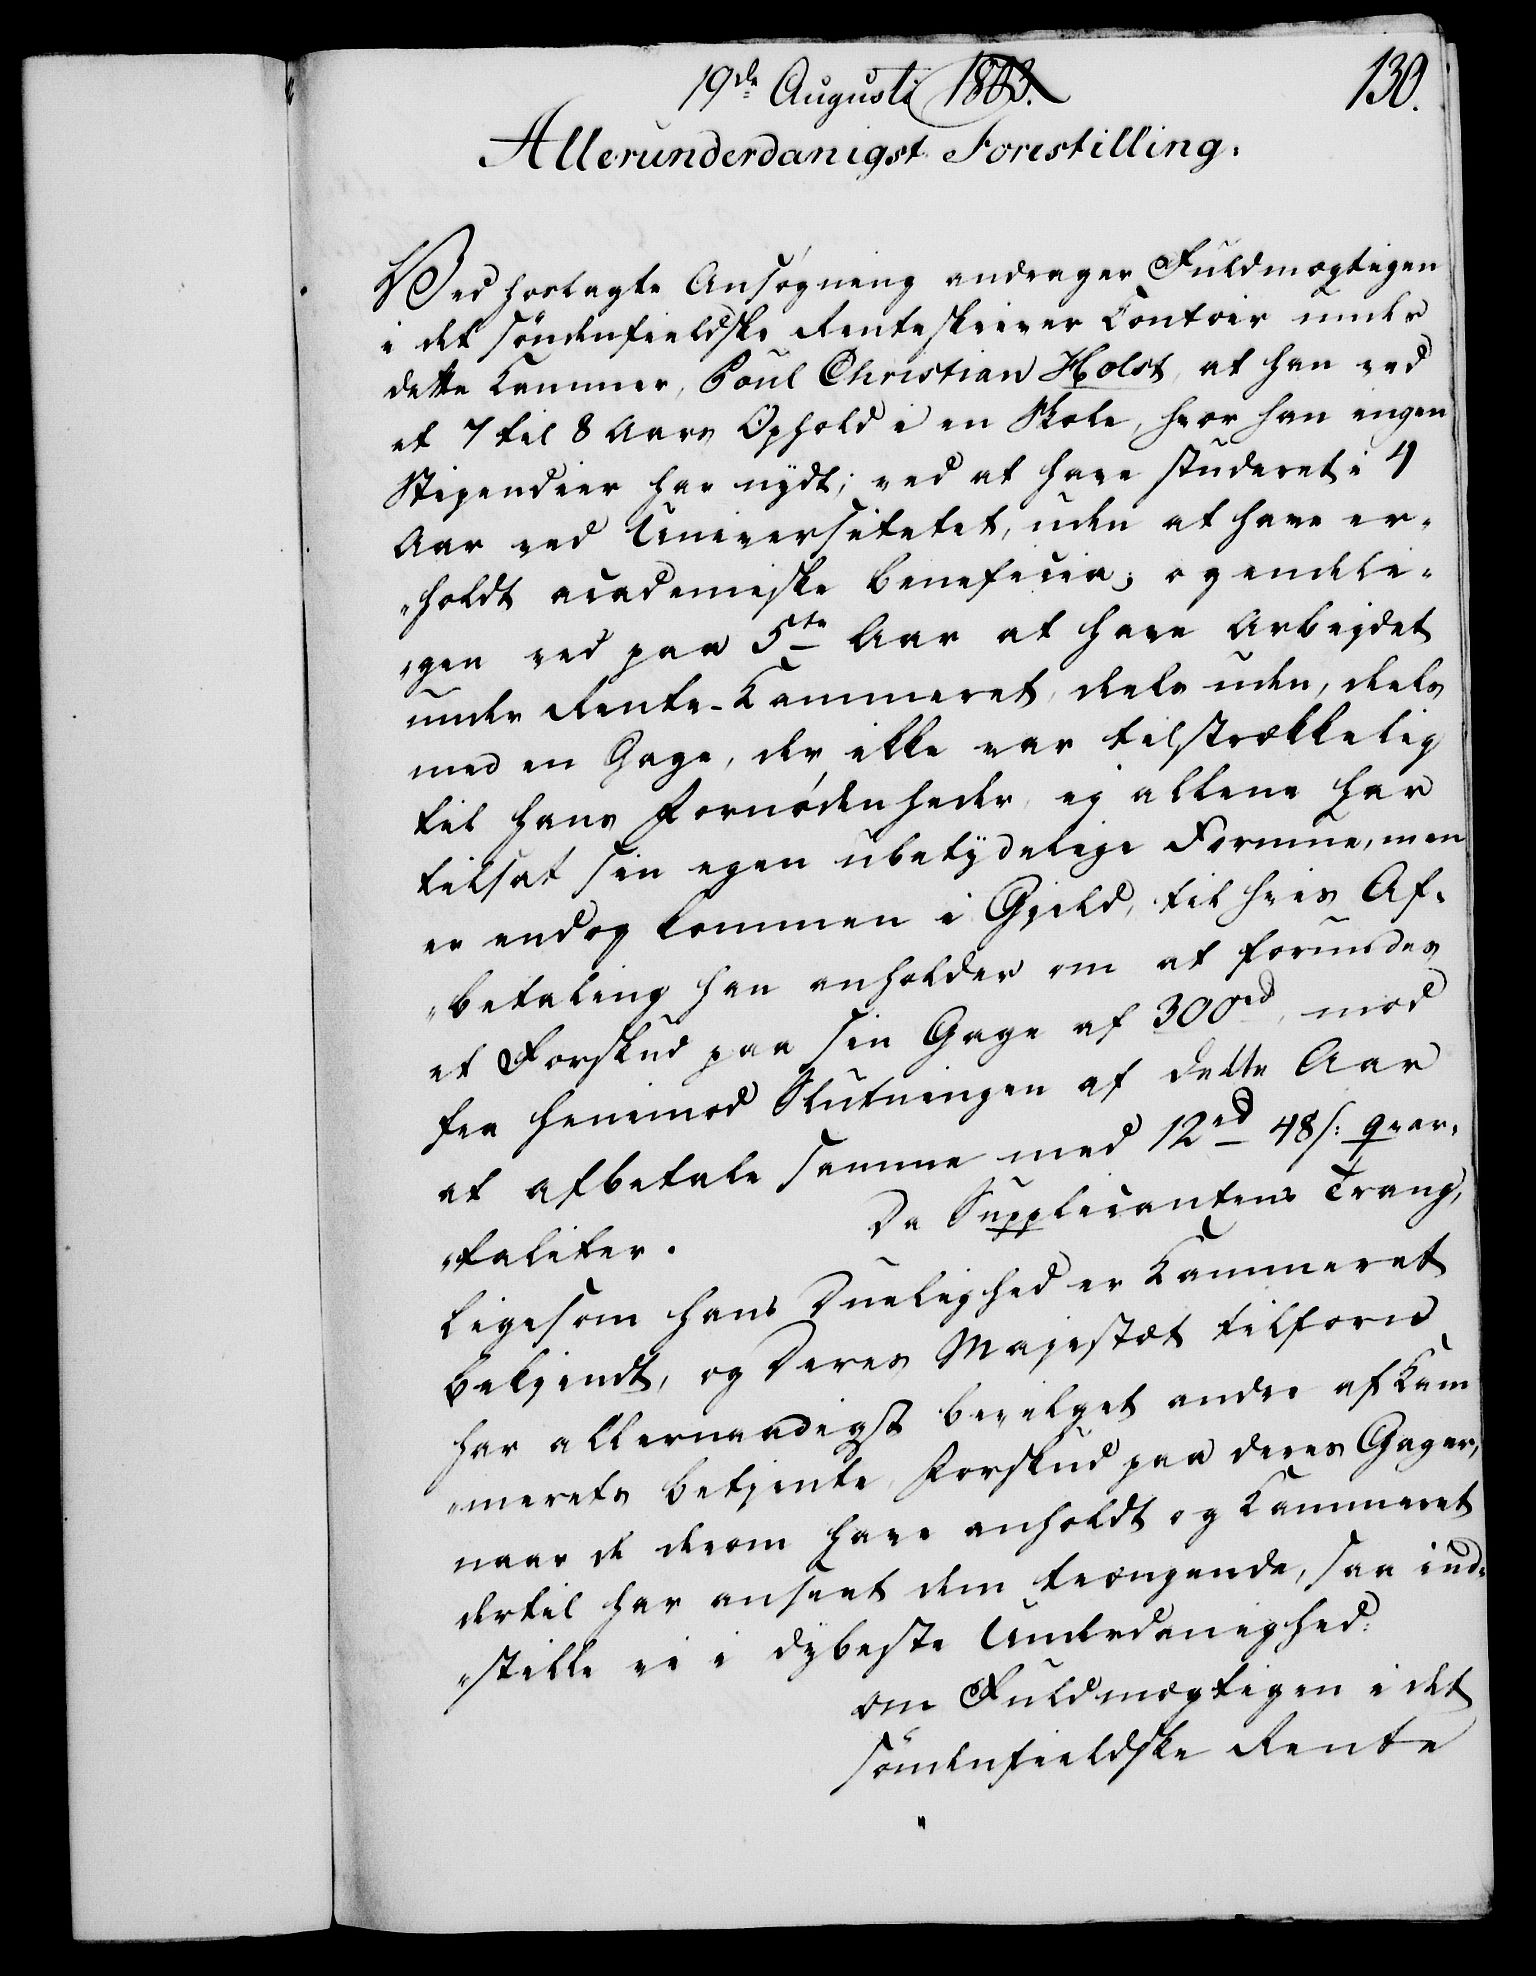 19de Augusti 1803.
130.
Allerunderdanigst Forestilling.
Ved hoslagte Ansøgning andrager Fuldmægtigen
i det söndenfieldske Renteskriver Contoir under
dette Kammer, Poul Christian Holst, at han ved
et 7 til 8 Aars Ophold i en Skole, hvor han ingen
Stipendier har nydt; ved at have studeret i 4
Aar ved Universitetet, uden at have er-
"holdt academiske beneficia; og endeli-
"gen ved paa 5te Aar at have Arbejdet
under Rente-Kammeret, deels uden, deels
med en Gage, der ikke var tilstrækkelig
til hans Fornødenheder, ej allene har
tilsat sin egen ubetydelige Formue, men
er endog kommen i Gjeld, til hvis Af-
"betaling han anholder om at forundes
et Forskud paa sin Gage af 300rd, mod
fra henimod Slutningen af dette Aar
at afbetale samme med 12rd 48s: qvar-
"taliter. Da Supplicantens Trang,
ligesom hans Duelighed er Kammeret
bekjendt, og Deres Majestæt tilforn
har allernaadigst bevilget andre af Kam
"merets betjente Forskud paa deres Gager,
naar de derom have anholdt og Kammeret
dertil har anseet dem trængende, saa ind-
"stille vi i dybeste Underdanighed:
om Fuldmægtigen i det
söndenfieldske Rente